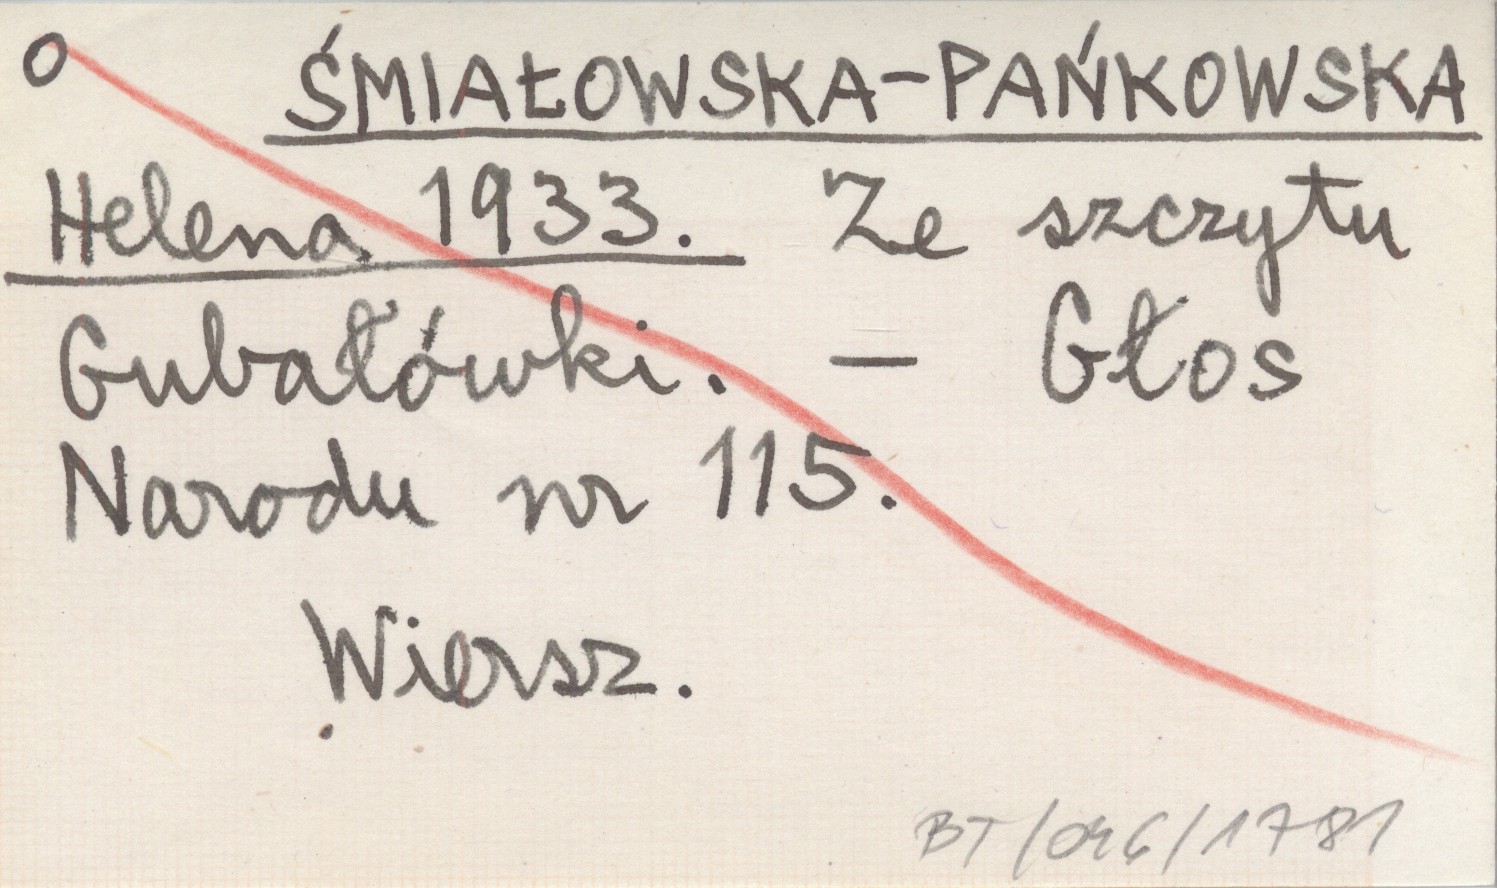 O ŚMIAŁOWSKA-PAŃKOWSKA
Helena 1933. Ze szczytu
Gubałówki. – Głos
Narodu nr 115.
Wiersz.
BT/046/1781